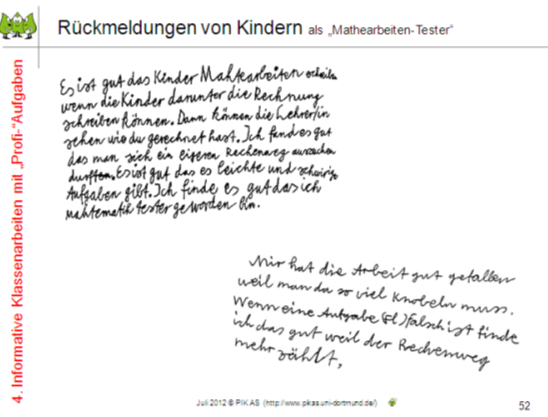 Rückmeldungen von Kindern als „Mathearbeiten-Tester“
4. Informative Klassenarbeiten mit „Profi-“Aufgaben
Es ist gut das Kinder Mahtearbeiten
wenn die Kinder darunter die Rechnung
schreiben können. Dann können die Lehrer/in
sehen wie du gerechnet hast. Ich fand es gut
das man sich ein eigenen Rechenweg aussuchen
durften. Es ist gut das es leichte und schwirige
Aufgaben gibt. Ich finde es gut das ich
mahtematik tester geworden bin.
Mir hat die Arbeit gut gefallen
weil man da so viel Knobeln muss.
Wenn eine Aufgabe falsch ist finde
ich das gut weil der Rechenweg
mehr zählt,
Juli 2012 © PIK AS (http://www.pikas.uni-dortmund.de/)
52